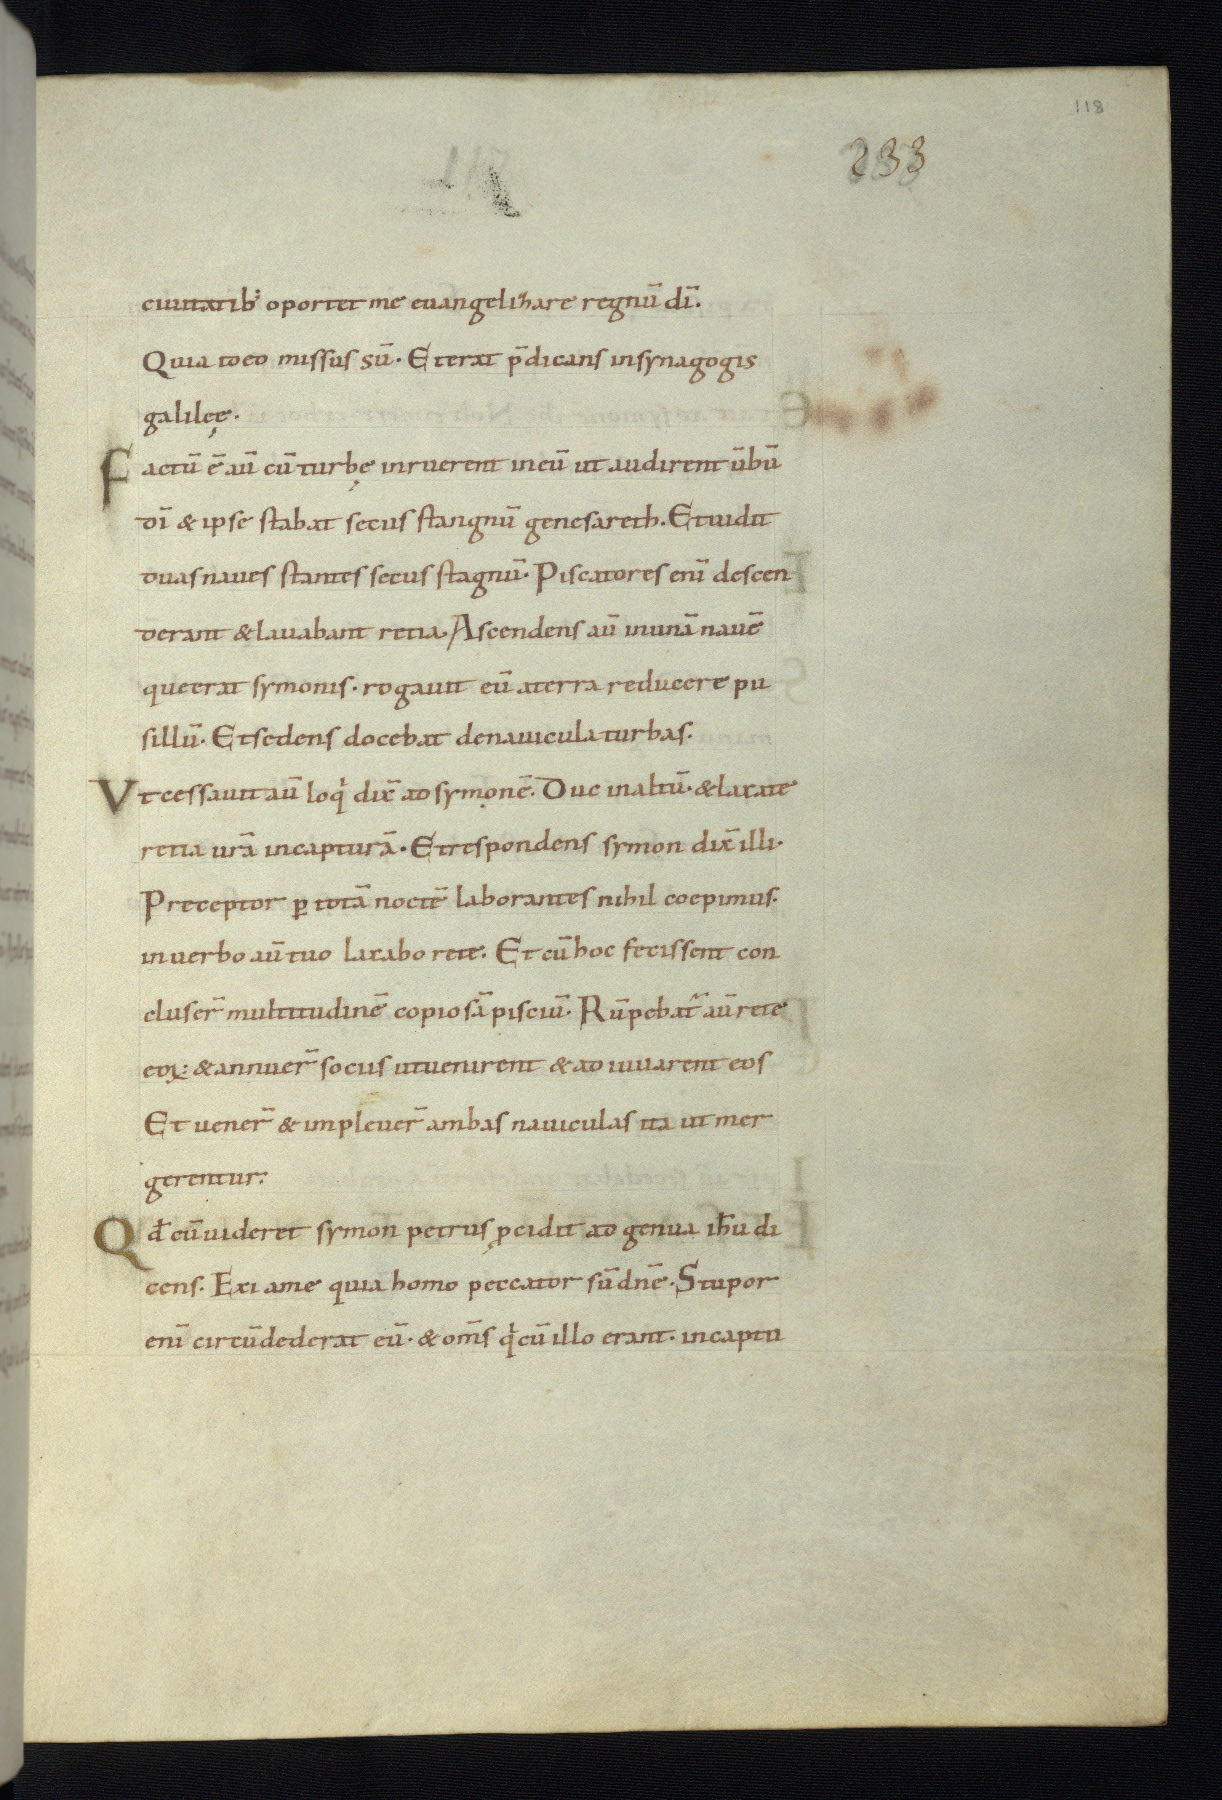 118
233
ciuitatib; oportet me euangelizare regnū dī.
Quia ideo missus sū. Et erat p̄dicans in synagogis
galileę.
Factū ē aū cū turbę inruerent in eū ut audirent ūbū
dī & ipse stabat secus stangnū genesareth. Et uidit
duas naues stantes secus stagnū. Piscatores enī descen
derant & lauabant retia. Ascendens aū in unā nauē
que erat symonis. rogauit eū a terra reducere pu
sillū. Et sedens docebat de nauicula turbas.
Vt cessauit aū loqi dix̄ ad symonē. Duc in altū. & laxate
retia urā in capturā. Et respondens symon dix̄ illi.
Preceptor ꝑ totā noctē laborantes nihil coepimus.
in uerbo aū tuo laxabo rete. Et cū hoc fecissent con
cluser̄ multitudinē copiosā pisciū. Rūpebat᷑ aū rete
eoꝝ. & annuer̄ sociis ut uenirent & adiuuarent eos
Et uener̄ & impleuer̄ ambas nauiculas ita ut mer
gerentur.
Qđ cū uideret symon petrus ꝓcidit ad genua ih̄u di
cens. Exi a me quia homo peccator sū dn̄e. Stupor
enī circūdederat eū. & om̄s qi cū illo erant. in captu